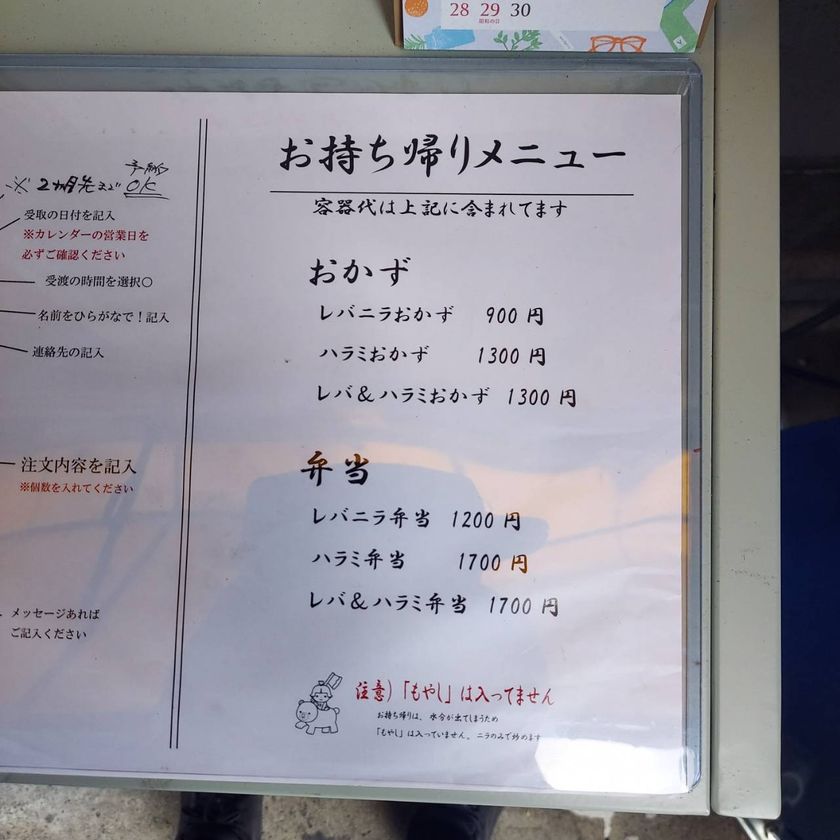 28 29 30
昭和の日
予約
※2ヵ月先まで OK
受取の日付を記入
※カレンダーの営業日を
必ずご確認ください
受渡の時間を選択〇
名前をひらがなで！記入
連絡先の記入
注文内容を記入
※個数を入れてください
メッセージあれば
ご記入ください
お持ち帰りメニュー
容器代は上記に含まれてます
おかず
レバニラおかず 900円
ハラミおかず 1300円
レバ＆ハラミおかず 1300円
弁当
レバニラ弁当 1200円
ハラミ弁当 1700円
レバ＆ハラミ弁当 1700円
注意）「もやし」は入ってません
お持ち帰りは、水分が出てしまうため
「もやし」は入っていません。ニラのみで炒めます